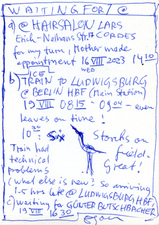 WAITING FOR/@
a) @ HAIRSALON LARS
for my turn, Mother made
appointment 16 VIII 2023 14 20
b) TRAIN TO LUDWIGSBURG
@ BERLIN HBF (Main Station)
19 VIII 08 15 - 09 04 - even
leaves on time!
10 30 Six Storks on
field.
Great!
Train had
technical
problems
(what else is new! so arriving
1.5 hours late @ LUDWIGSBURG HBF)
c) waiting for GÜNTER BUTSCHBACHER
19 VIII 16 30